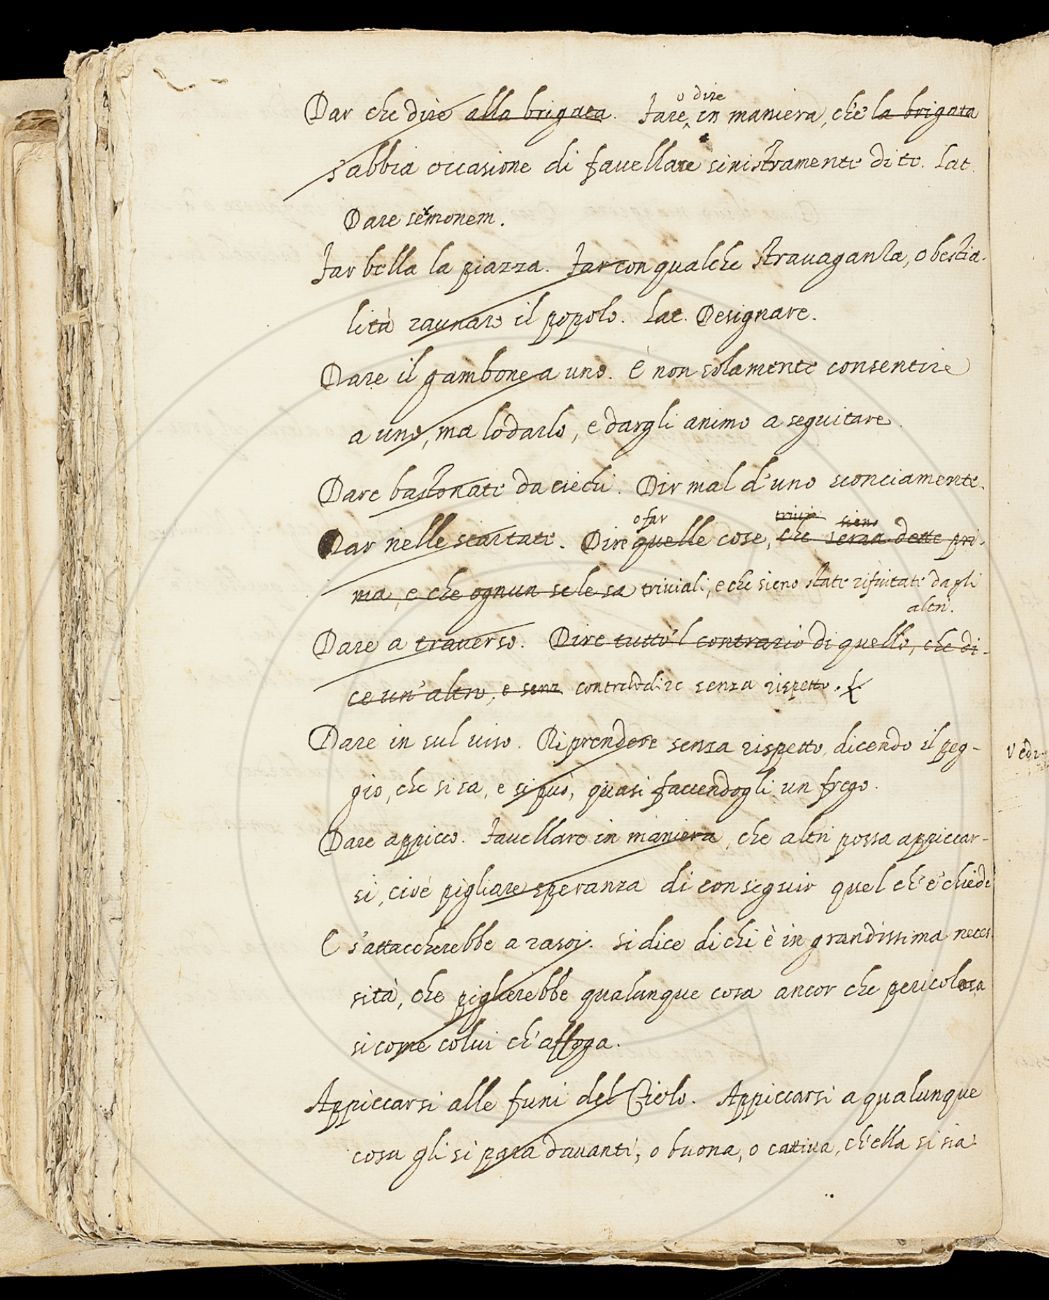 Dar che dire alla brigata. Fare, in maniera, che la brigata
o dire
s'abbia occasione di favellare sinistramente di te. Lat.
Dare sermonem.
Far bella la piazza. Far con qualche stravaganza, o bestia-
lità raunare il popolo. Lat. Designare.
Dare il gambone a uno. È non solamente consentire
a uno, ma lodarlo, e dargli animo a seguitare.
Dare bastonate da ciechi. Dir mal d'uno sconciamente.
o far sieno
Dar nelle scartate. Dire quelle cose, che senza dette pri-
ma, e che ognun se le sa triviali, e che sieno state rifiutate dagli
altri.
Dare a traverso. Dire tutto'l contrario di quello, che di-
ce un'altro, e senz contraddire senza rispetto.
Dare in sul viso. Riprendere senza rispetto, dicendo il peg-
gio, che si sa, e si può, quasi facendogli un frego.
Dare appicco. Favellare in maniera, che altri possa appiccar-
si, cioè pigliare speranza di conseguir quel ch'e' chiede
E s'attaccherebbe a rasoj. Si dice di chi è in grandissima neces-
sità, che piglierebbe qualunque cosa ancor che pericolosa
si come colui ch'affoga.
Appiccarsi alle funi del Cielo. Appiccarsi a qualunque
cosa gli si para davanti, o buona, o cattiva, ch'ella si sia
Vedi